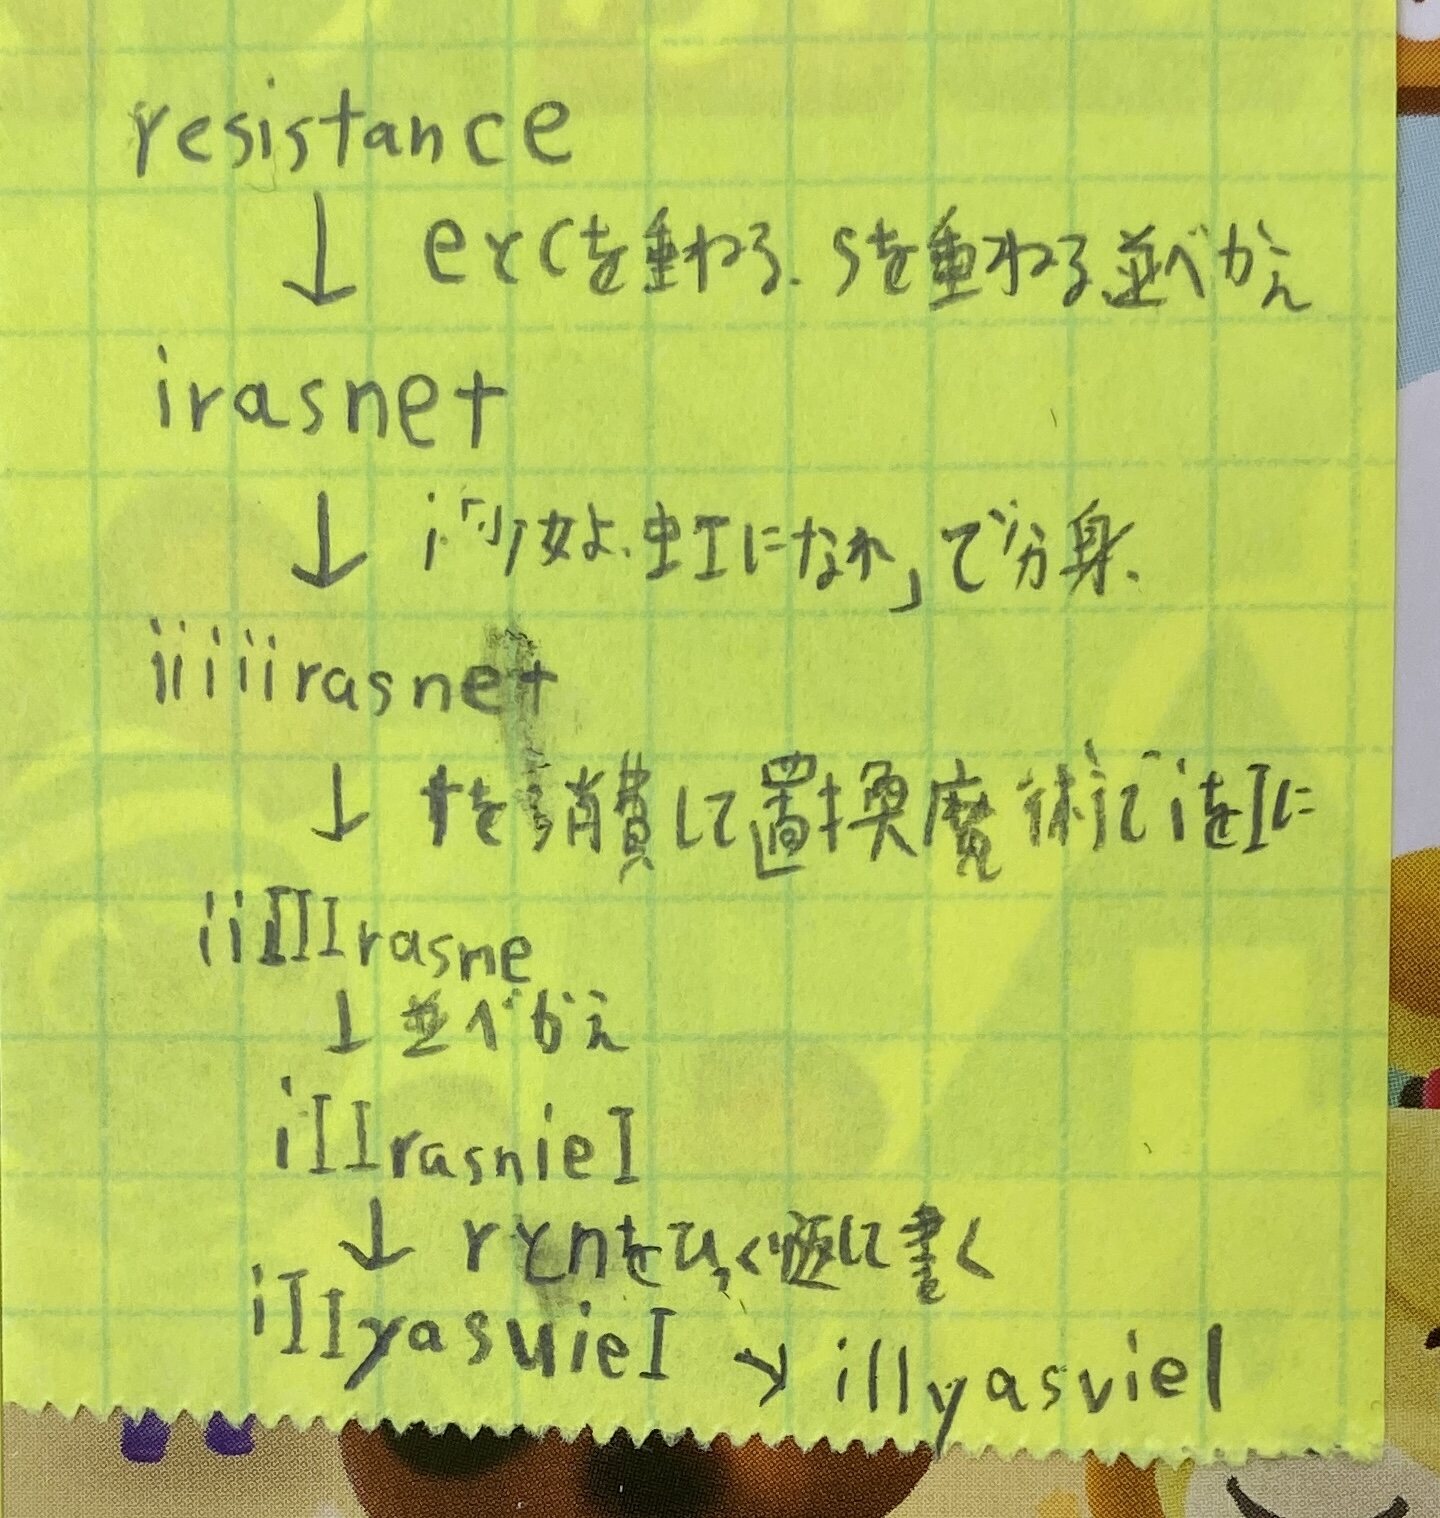 resistance
↓ eとcを重ねる. sを重ねる 並べかえ
irasnet
↓ i「少女よ、虹になれ」で分身.
iiiiiirasnet
↓ tを消費して置換魔術でiをIに
iiIIIrasne
↓ 並べかえ
iIIrasnieI
↓ rとnをひっくり返して書く
iIIyasuieI → illyasviel